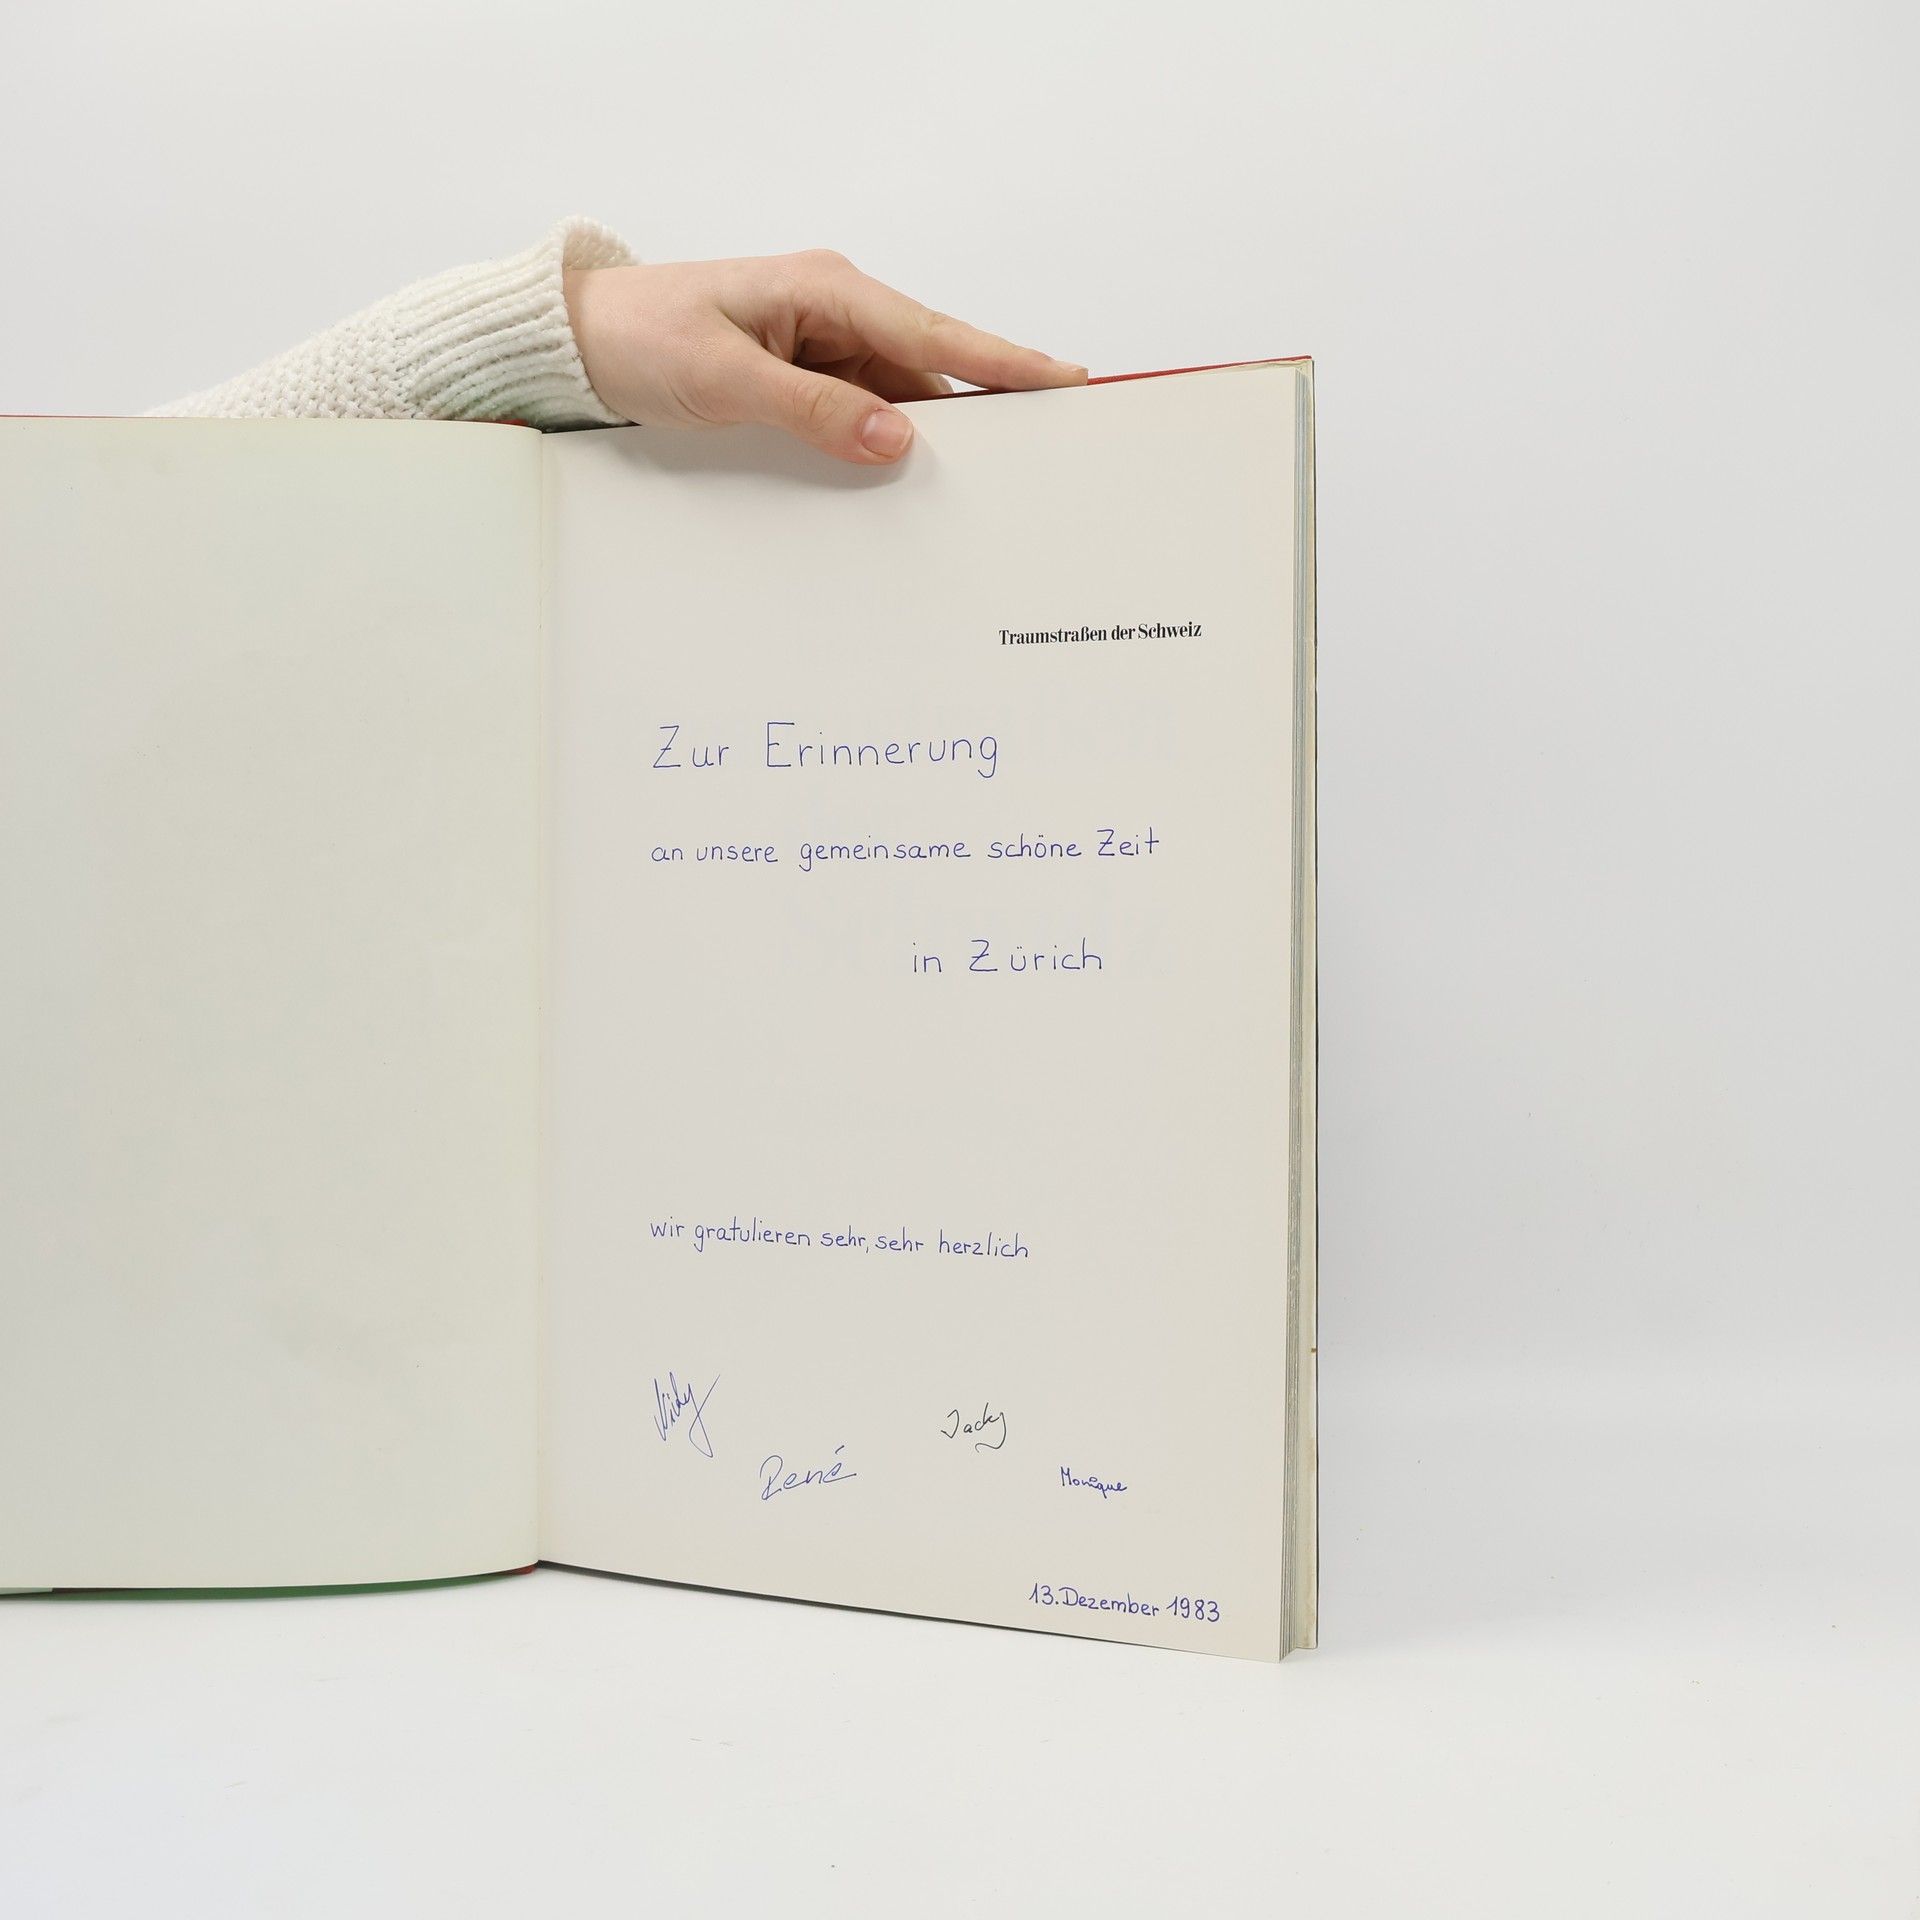 Traumstraßen der Schweiz
Zur Erinnerung
an unsere gemeinsame schöne Zeit
in Zürich
wir gratulieren sehr, sehr herzlich
Jacky
René
Monique
13. Dezember 1983